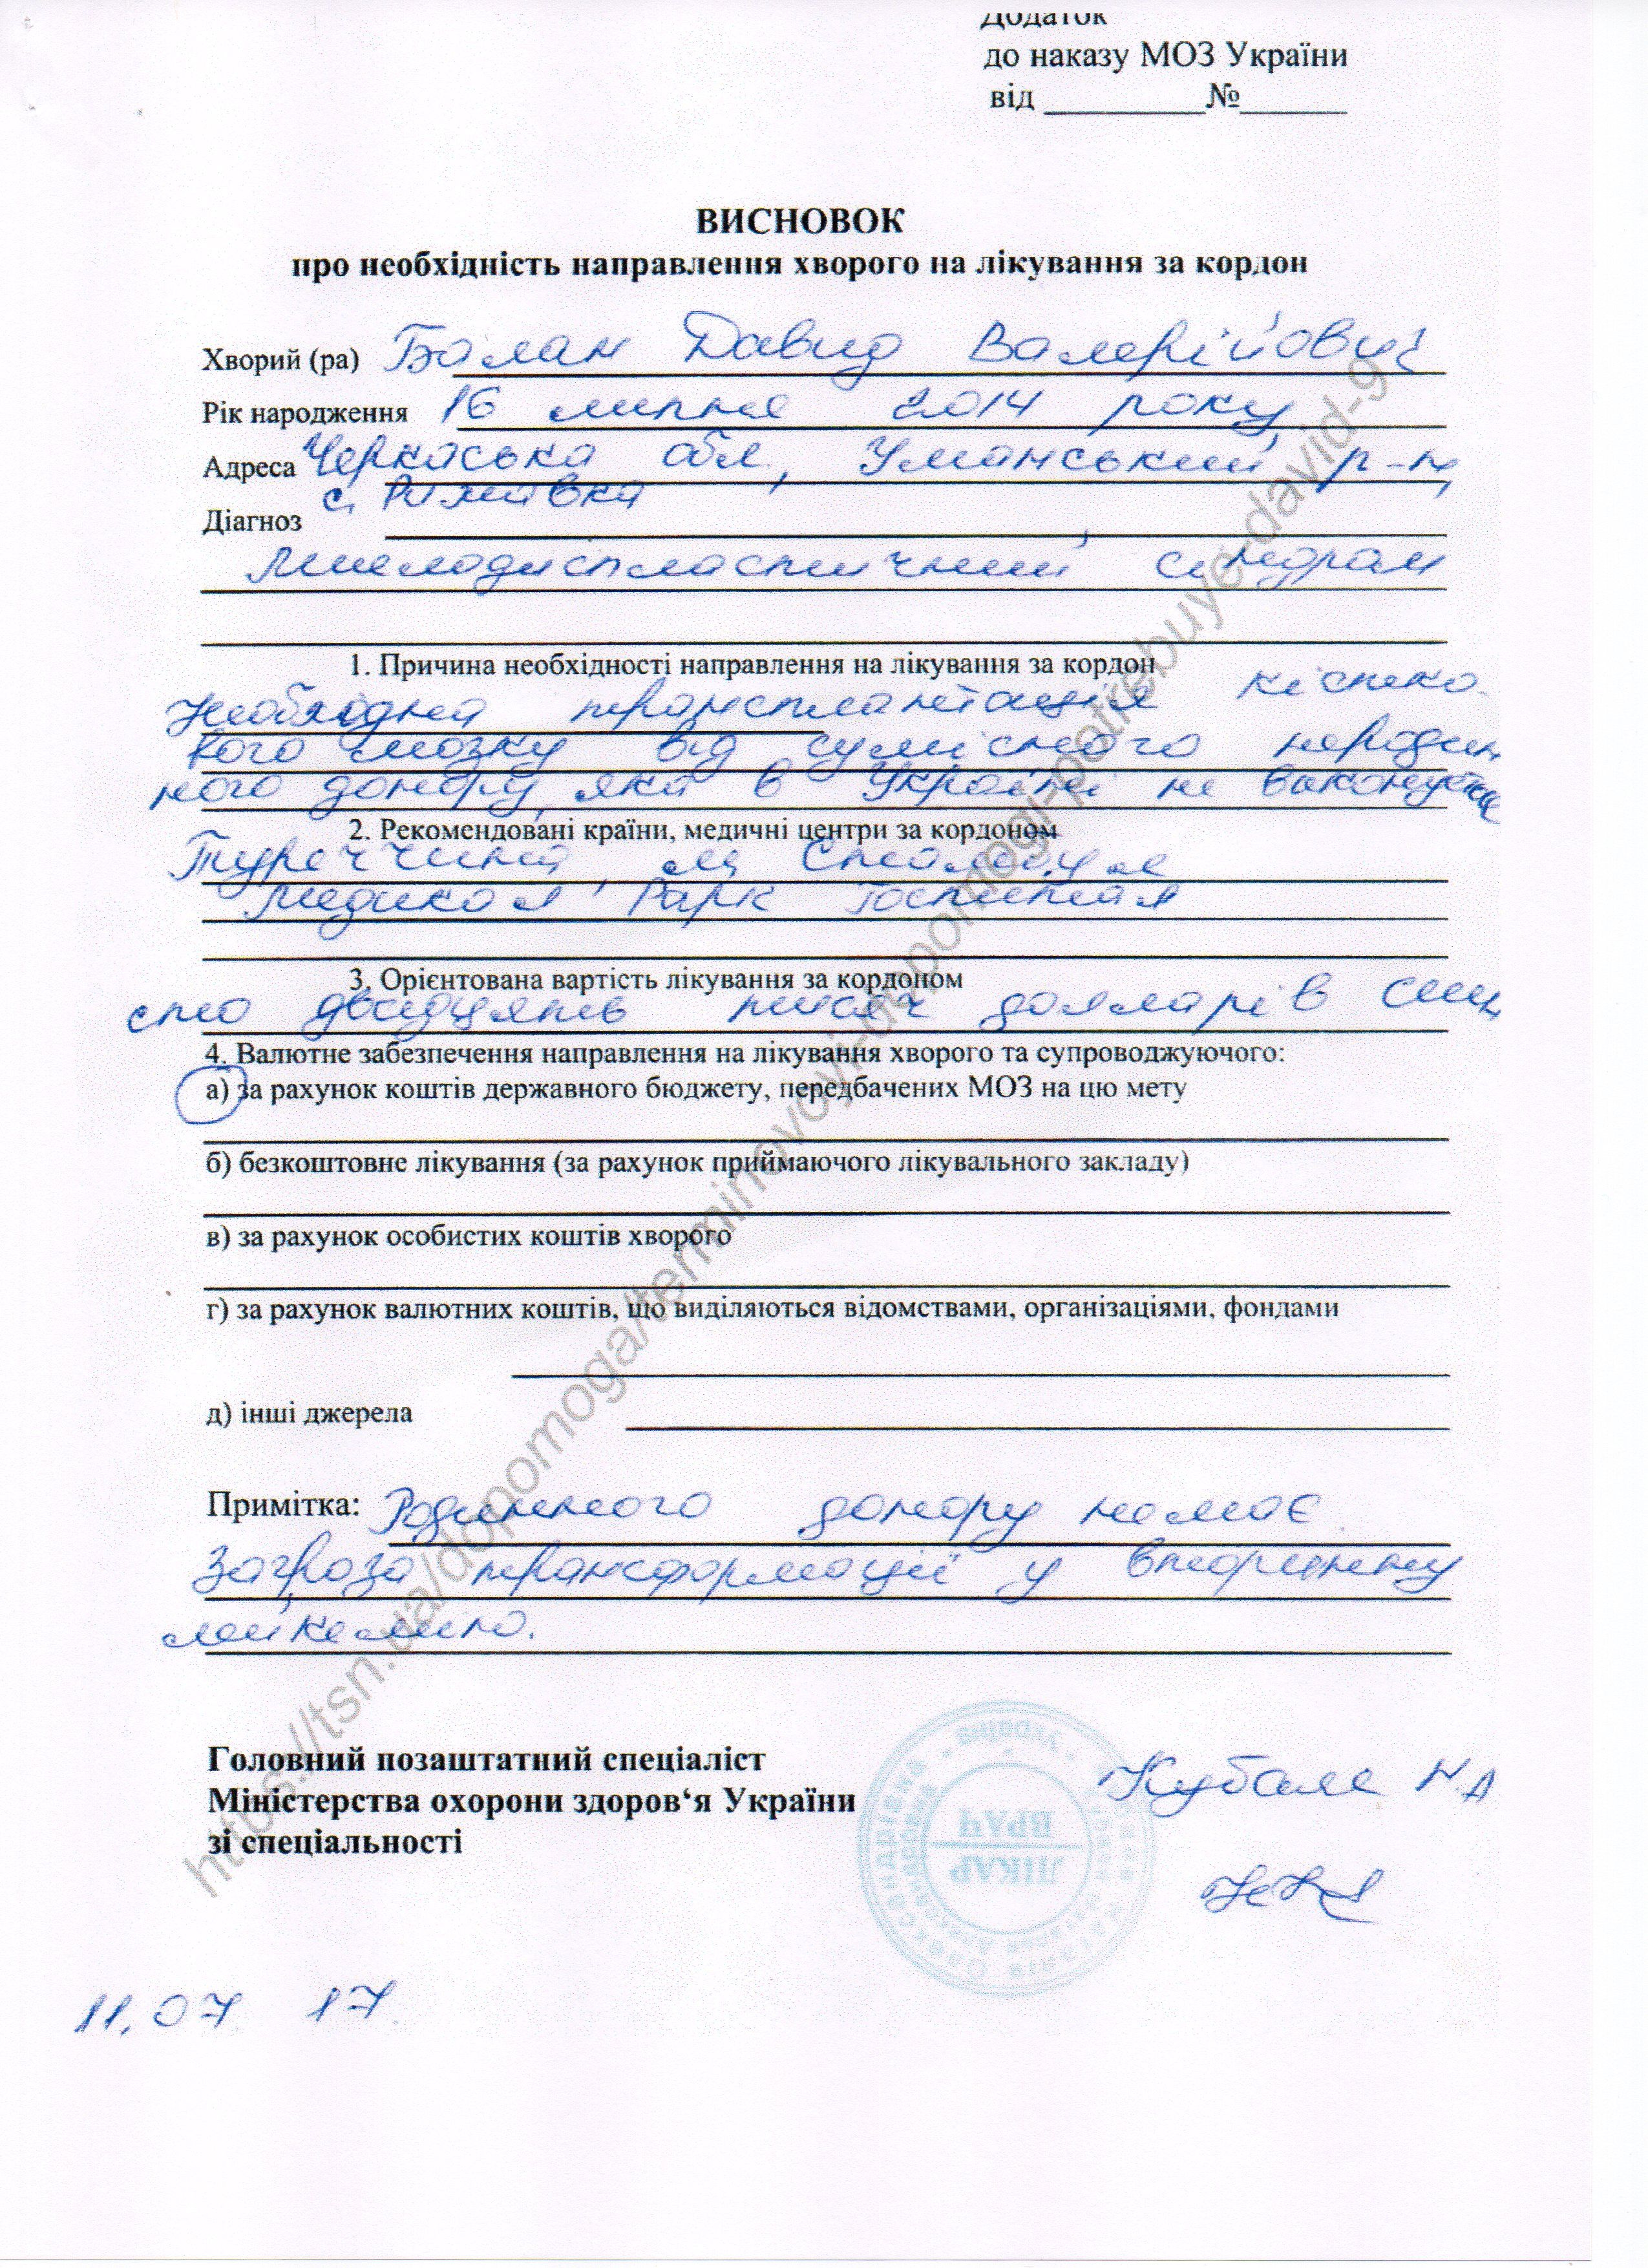 Додаток
до наказу МОЗ України
від __________№_______
ВИСНОВОК
про необхідність направлення хворого на лікування за кордон
Хворий (ра) Балан Давид Валерійович
Рік народження 16 липня 2014 року
Адреса Черкаська обл., Уманський р-н,
с.
Діагноз
Мієлодиспластичний синдром
1. Причина необхідності направлення на лікування за кордон
Необхідна трансплантація кістко-
вого мозку від сумісного неродин
ного донору, яка в Україні не виконується
2. Рекомендовані країни, медичні центри за кордоном
Туреччина, м. Стамбул
Медикал Парк Госпітал
3. Орієнтована вартість лікування за кордоном
сто двадцять тисяч долларів США
4. Валютне забезпечення направлення на лікування хворого та супроводжуючого:
а) за рахунок коштів державного бюджету, передбачених МОЗ на цю мету
б) безкоштовне лікування (за рахунок приймаючого лікувального закладу)
в) за рахунок особистих коштів хворого
г) за рахунок валютних коштів, що виділяються відомствами, організаціями, фондами
д) інші джерела
Примітка: Родинного донору немає.
Загроза трансформації у вторинну
лейкемію.
Головний позаштатний спеціаліст
Міністерства охорони здоров‘я України
зі спеціальності
Кубаля Н.А
ЛІКАР
ВРАЧ
Україна
11.07 17
https://tsn.ua/dopomoga/terminovoyi-dopomogi-potrebuye-david-9